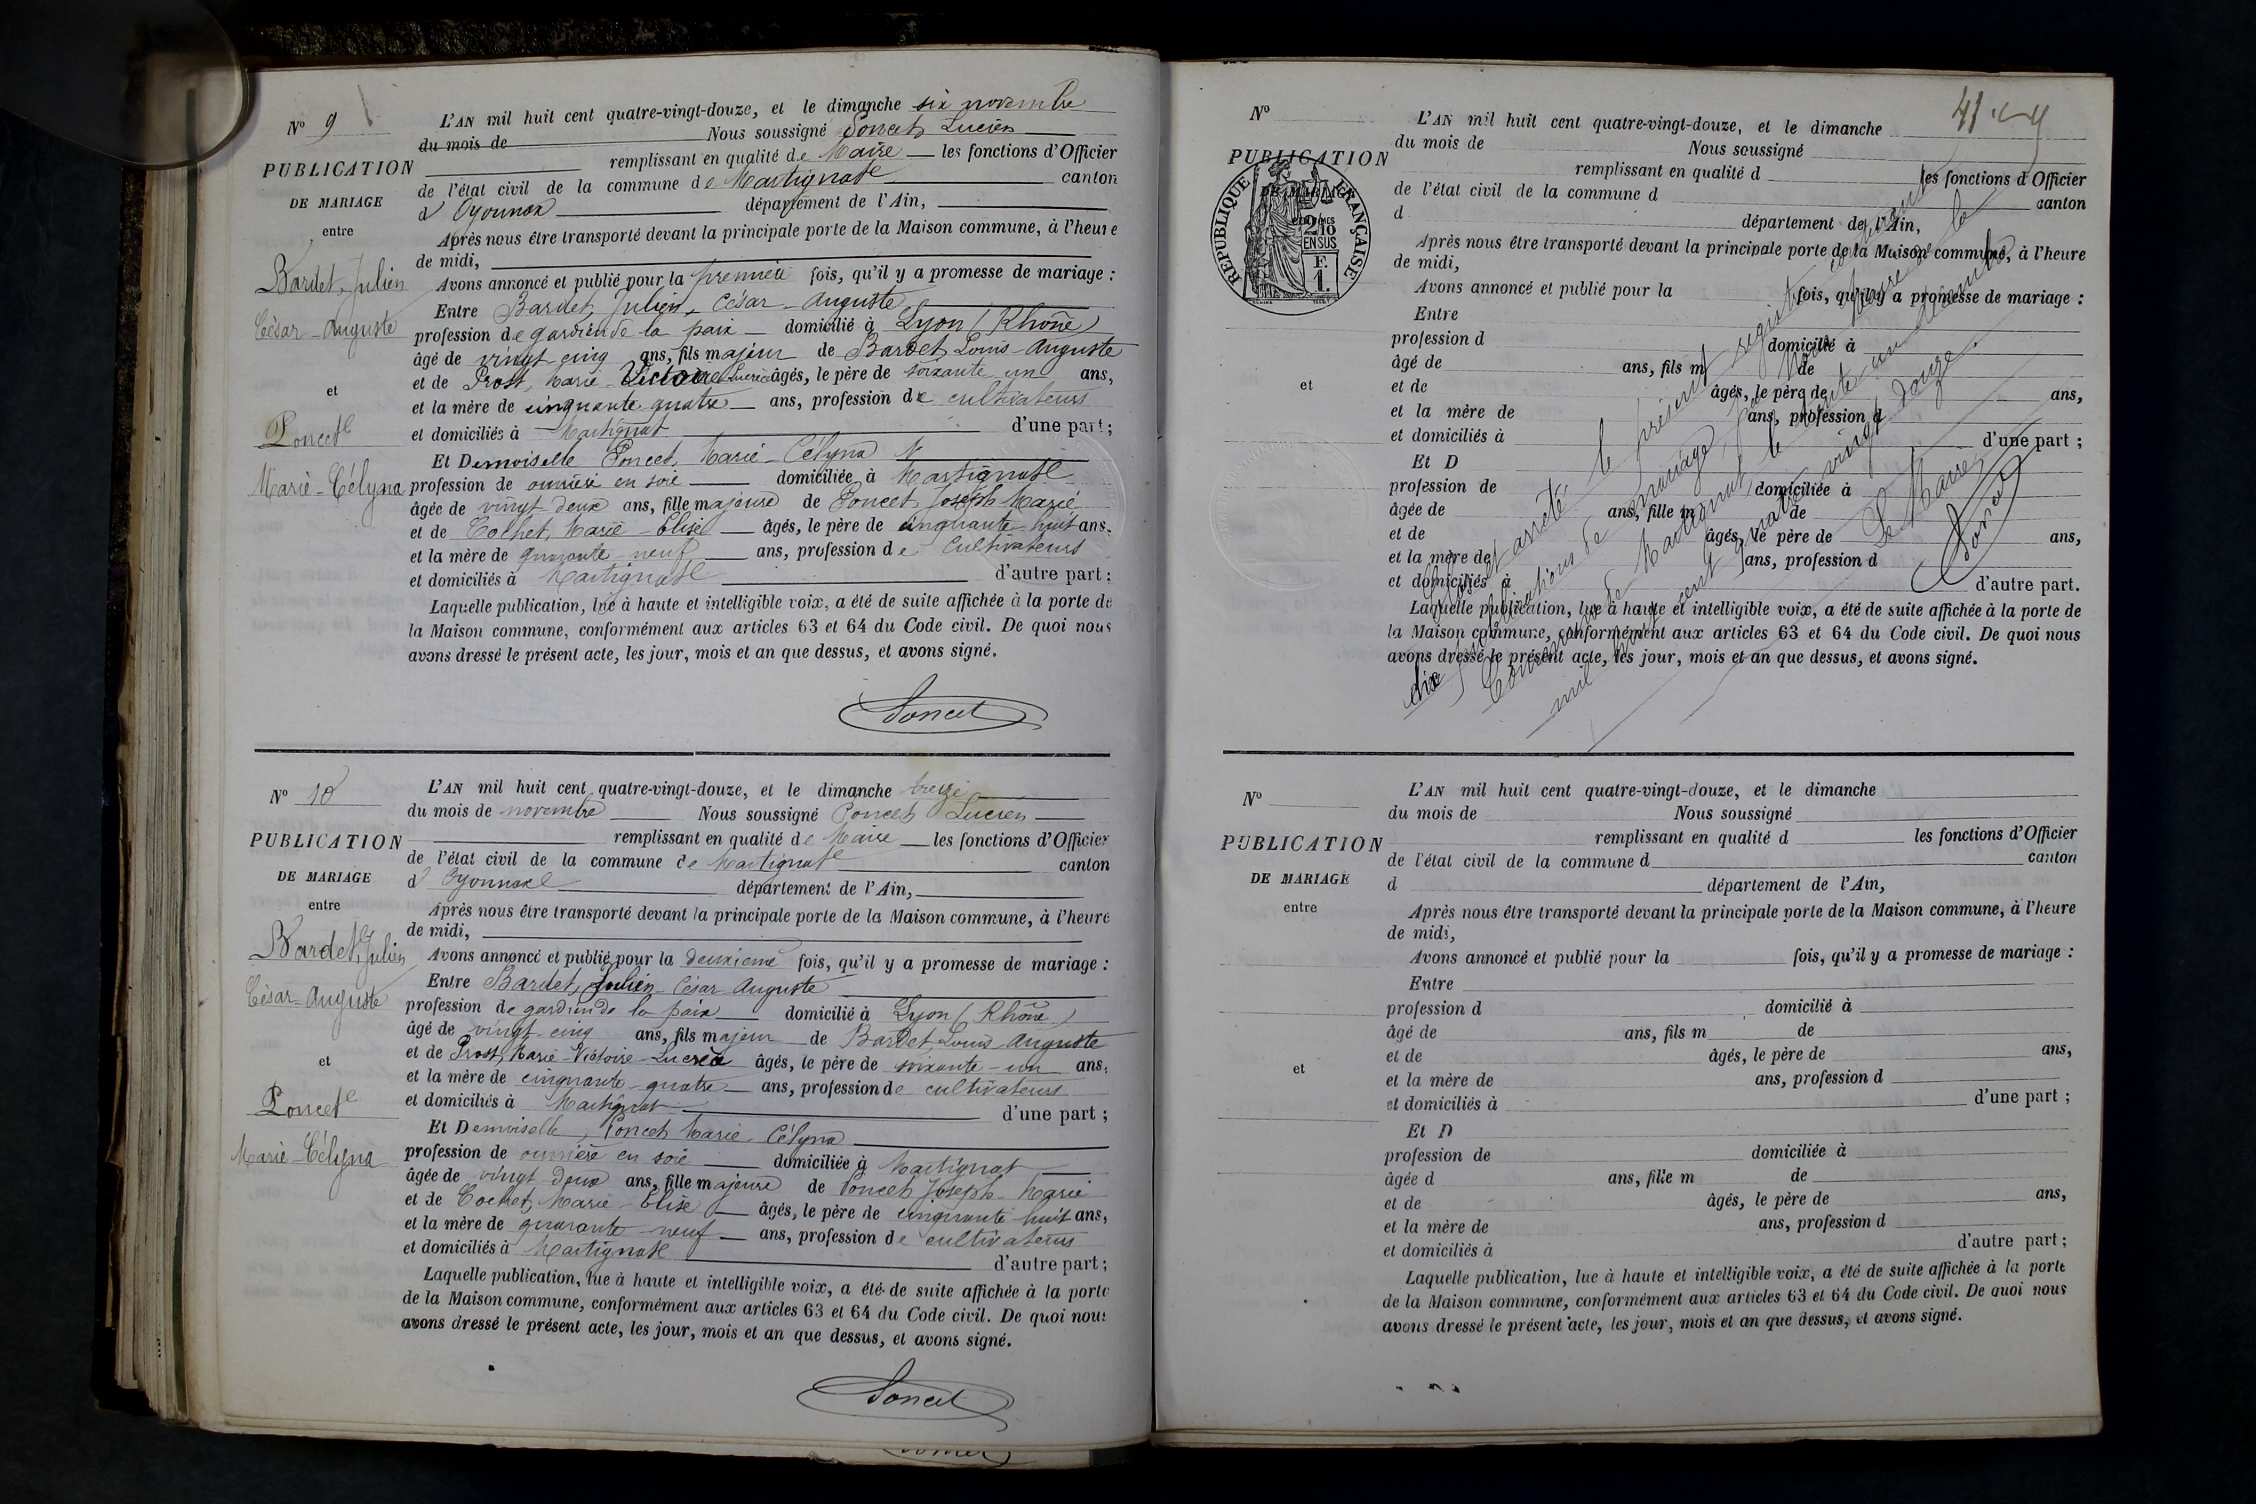 N° 9
PUBLICATION
DE MARIAGE
entre
Bardet, Julien
César-Auguste
et
Poncet
Marie-Célyna
L'AN mil huit cent quatre-vingt-douze, et le dimanche six novembre
du mois de Nous soussigné Poncet, Lucien
remplissant en qualité de Maire les fonctions d'Officier
de l'état civil de la commune de Martignat canton
d'Oyonnax département de l'Ain,
Après nous être transporté devant la principale porte de la Maison commune, à l'heure
de midi,
Avons annoncé et publié pour la première fois, qu'il y a promesse de mariage :
Entre Bardet, Julien-César-Auguste
profession de gardien de la paix domicilié à Lyon (Rhône)
âgé de vingt cinq ans, fils majeur de Bardet, Louis-Auguste
et de Prost, Marie-Victoire Lucrèce âgés, le père de soixante un ans,
et la mère de cinquante quatre ans, profession de cultivateurs
et domiciliés à Martignat d'une part ;
Et Demoiselle Poncet, Marie-Célyna
profession de ouvrière en soie domiciliée à Martignat
âgée de vingt deux ans, fille majeure de Poncet, Joseph Marie
et de Cochet, Marie-Elise âgés, le père de cinquante-huit ans.
et la mère de quarante-neuf ans, profession de Cultivateurs
et domiciliés à Martignat d'autre part ;
Laquelle publication, lue à haute et intelligible voix, a été de suite affichée à la porte de
la Maison commune, conformément aux articles 63 et 64 du Code civil. De quoi nous
avons dressé le présent acte, les jour, mois et an que dessus, et avons signé.
Poncet
N° 10
PUBLICATION
DE MARIAGE
entre
Bardet, Julien
César-Auguste
et
Poncet
Marie-Célyna
L'AN mil huit cent quatre-vingt-douze, et le dimanche treize
du mois de novembre Nous soussigné Poncet Lucien
remplissant en qualité de Maire les fonctions d'Officier
de l'état civil de la commune de Martignat canton
d'Oyonnax département de l'Ain,
Après nous être transporté devant la principale porte de la Maison commune, à l'heure
de midi,
Avons annoncé et publié pour la deuxième fois, qu'il y a promesse de mariage :
Entre Bardet, Julien-César Auguste
profession de gardien de la paix domicilié à Lyon (Rhône)
âgé de vingt cinq ans, fils majeur de Bardet, Louis-Auguste
et de Prost, Marie-Victoire-Lucrèce âgés, le père de soixante-un ans,
et la mère de cinquante-quatre ans, profession de cultivateurs
et domiciliés à Martignat d'une part ;
Et Demoiselle, Poncet Marie-Célyna
profession de ouvrière en soie domiciliée à Martignat
âgée de vingt deux ans, fille majeure de Poncet, Joseph-Marie
et de Cochet, Marie-Elise âgés, le père de cinquante huit ans,
et la mère de quarante-neuf ans, profession de cultivateurs
et domiciliés à Martignat d'autre part ;
Laquelle publication, lue à haute et intelligible voix, a été de suite affichée à la porte
de la Maison commune, conformément aux articles 63 et 64 du Code civil. De quoi nous
avons dressé le présent acte, les jour, mois et an que dessus, et avons signé.
Poncet
N°
PUBLICATION
DE MARIAGE
RÉPUBLIQUE FRANÇAISE
2/10
EN SUS
F.
1.
et
L'AN mil huit cent quatre-vingt-douze, et le dimanche
du mois de Nous soussigné
remplissant en qualité d les fonctions d'Officier
de l'état civil de la commune d canton
d département de l'Ain,
Après nous être transporté devant la principale porte de la Maison commune, à l'heure
de midi,
Avons annoncé et publié pour la fois, qu'il y a promesse de mariage :
Entre
profession d domicilié à
âgé de ans, fils m de
et de âgés, le père de ans,
et la mère de ans, profession d
et domiciliés à d'une part ;
Et D
profession de domiciliée à
âgée de ans, fille m de
et de âgés, le père de ans,
et la mère de ans, profession d
et domiciliés à d'autre part.
Laquelle publication, lue à haute et intelligible voix, a été de suite affichée à la porte de
la Maison commune, conformément aux articles 63 et 64 du Code civil. De quoi nous
avons dressé le présent acte, les jour, mois et an que dessus, et avons signé.
Clos et arrêté le présent registre
dix publications de mariage, par Nous Maire de la
Commune de Martignat le trente un décembre
mil huit cent quatre vingt douze.
Le Maire,
Poncet
N°
PUBLICATION
DE MARIAGE
entre
et
L'AN mil huit cent quatre-vingt-douze, et le dimanche
du mois de Nous soussigné
remplissant en qualité d les fonctions d'Officier
de l'état civil de la commune d canton
d département de l'Ain,
Après nous être transporté devant la principale porte de la Maison commune, à l'heure
de midi,
Avons annoncé et publié pour la fois, qu'il y a promesse de mariage :
Entre
profession d domicilié à
âgé de ans, fils m de
et de âgés, le père de ans,
et la mère de ans, profession d
et domiciliés à d'une part ;
Et D
profession de domiciliée à
âgée d ans, fille m de
et de âgés, le père de ans,
et la mère de ans, profession d
et domiciliés à d'autre part ;
Laquelle publication, lue à haute et intelligible voix, a été de suite affichée à la porte
de la Maison commune, conformément aux articles 63 et 64 du Code civil. De quoi nous
avons dressé le présent acte, les jour, mois et an que dessus, et avons signé.